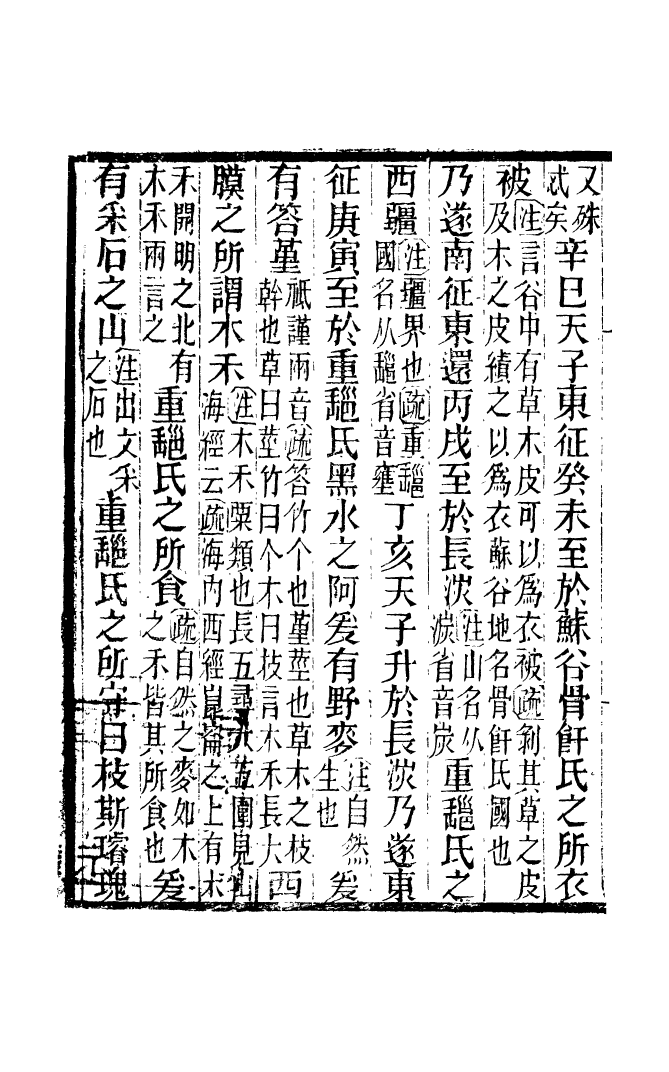 又殊弌矣辛巳天子東征癸未至於蘇谷骨飦氏之所衣
被注言谷中有草木皮可以爲衣被疏剝其草之皮及木之皮績之以爲衣蘇谷地名骨飦氏國也
乃遂南征東還丙戌至於長淡注山名从淡省音炭重䣝氏之
西疆注疆界也疏重䣝國名从䣝省音壅丁亥天子升於長淡乃遂東
征庚寅至於重䣝氏黑水之阿爰有野麥注自然生也爰
有答堇祇謹兩音疏答竹个也堇莖也草木之枝幹也草曰莖竹曰个木曰枝言木禾長大西
膜之所謂木禾注木禾粟類也長五尋大五圍見山海經云疏海内西經崑崙之上有木
禾開明之北有木禾兩言之重䣝氏之所食疏自然之麥如木之禾皆其所食也爰
有采石之山注出文采之石也重䣝氏之所守曰枝斯璿瑰